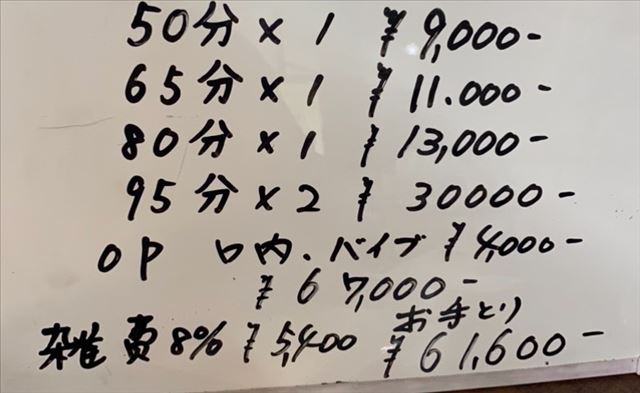 50分×1 ¥9,000-
65分×1 ¥11.000-
80分×1 ¥13,000-
95分×2 ¥30000-
OP 口内.バイブ ¥4,000-
¥67,000-
お手とり
雑費8% ¥5,400 ¥61,600-